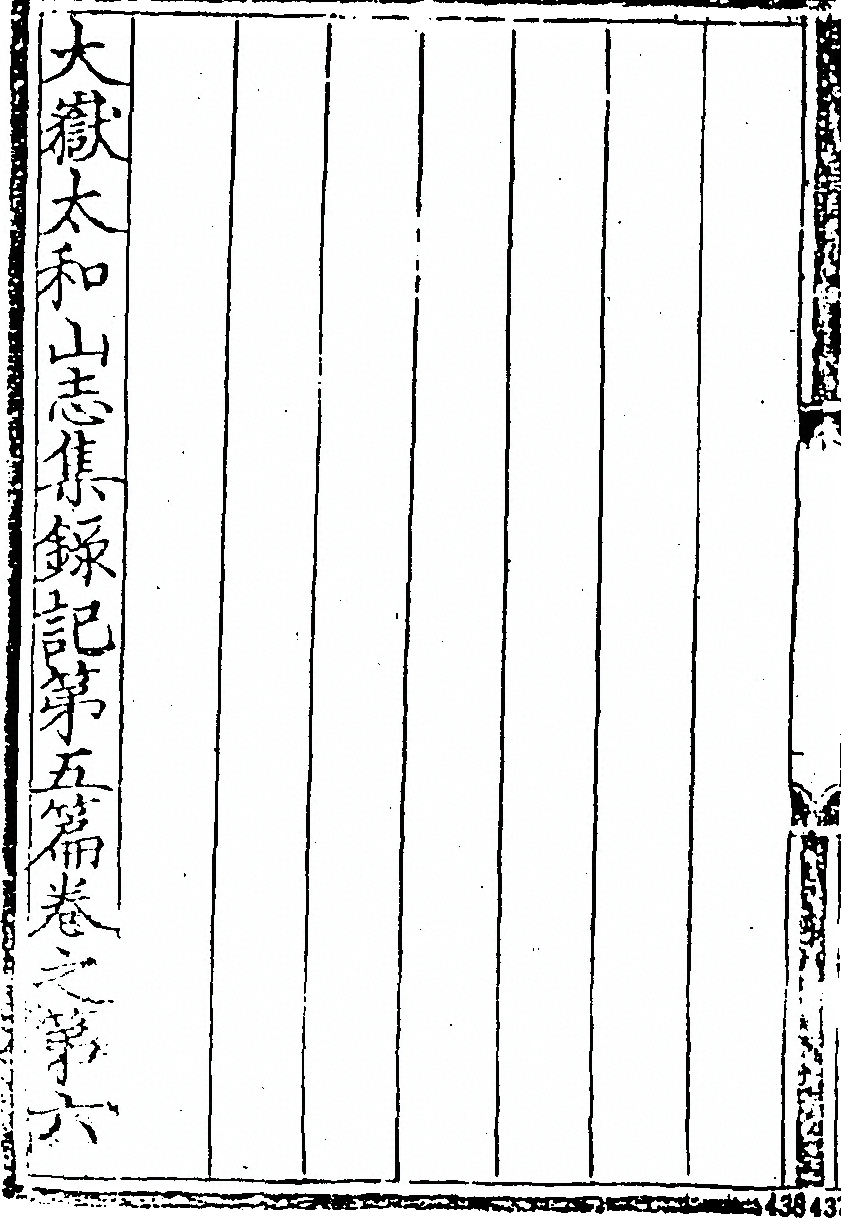 大嶽太和山志集錄記第五篇卷之第六
438